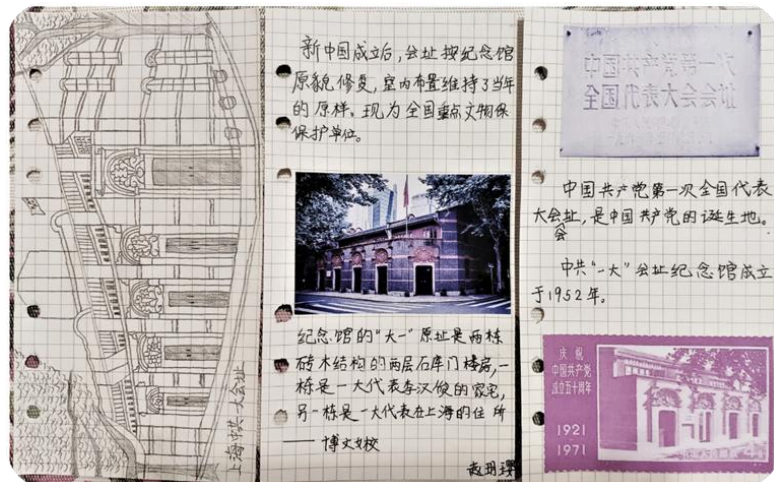 上海中共一大会址
新中国成立后,会址按纪念馆
原貌修复,室内布置维持了当年
的原样。现为全国重点文物保
保护单位。
纪念馆的“大一”原址是两栋
砖木结构的两层石库门楼房,一
栋是一大代表李汉俊的寓宅,
另一栋是一大代表在上海的住所
——博文女校
中国共产党第一
全国代表大会会
中国共产党第一次全国代表
大会址,是中国共产党的诞生地。
会
中共“一大”会址纪念馆成立
于1952年。
庆祝
中国共产党
成立五十周年
1921
1971